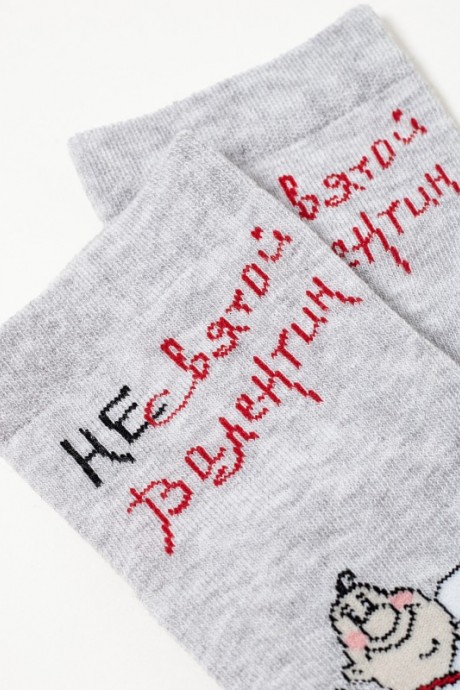 НЕ святой
Валентин
святой
Валентин